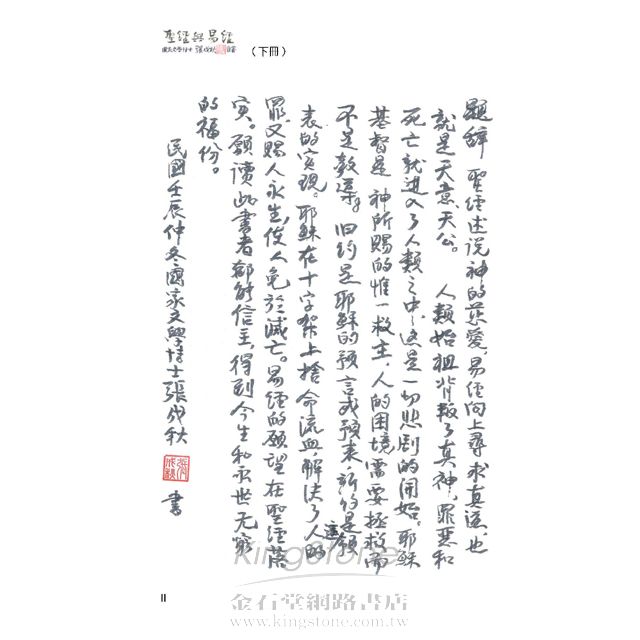 聖經與易經
（下冊）
題辞 聖經述说神的慈愛，易經向上尋求真道，也
就是天意天公。 人類始祖背叛了真神，罪惡和
死亡就进入了人類之中，这是一切悲剧的開始。耶穌
基督是 神所賜的惟一救主，人的困境需要拯救而
不是教導。旧约是耶穌的預言或預表，新约是預
表的实現。耶穌在十字架上捨命流血，解决了人的
罪，又賜人永生，使人免於滅亡。易經的願望在聖經落
实。願讀此書者都能信主，得到今生和永世无窮
的福份。
民國壬辰仲冬國家文學博士張成秋
書
II
Kingstone
金石堂網路書店
www.kingstone.com.tw